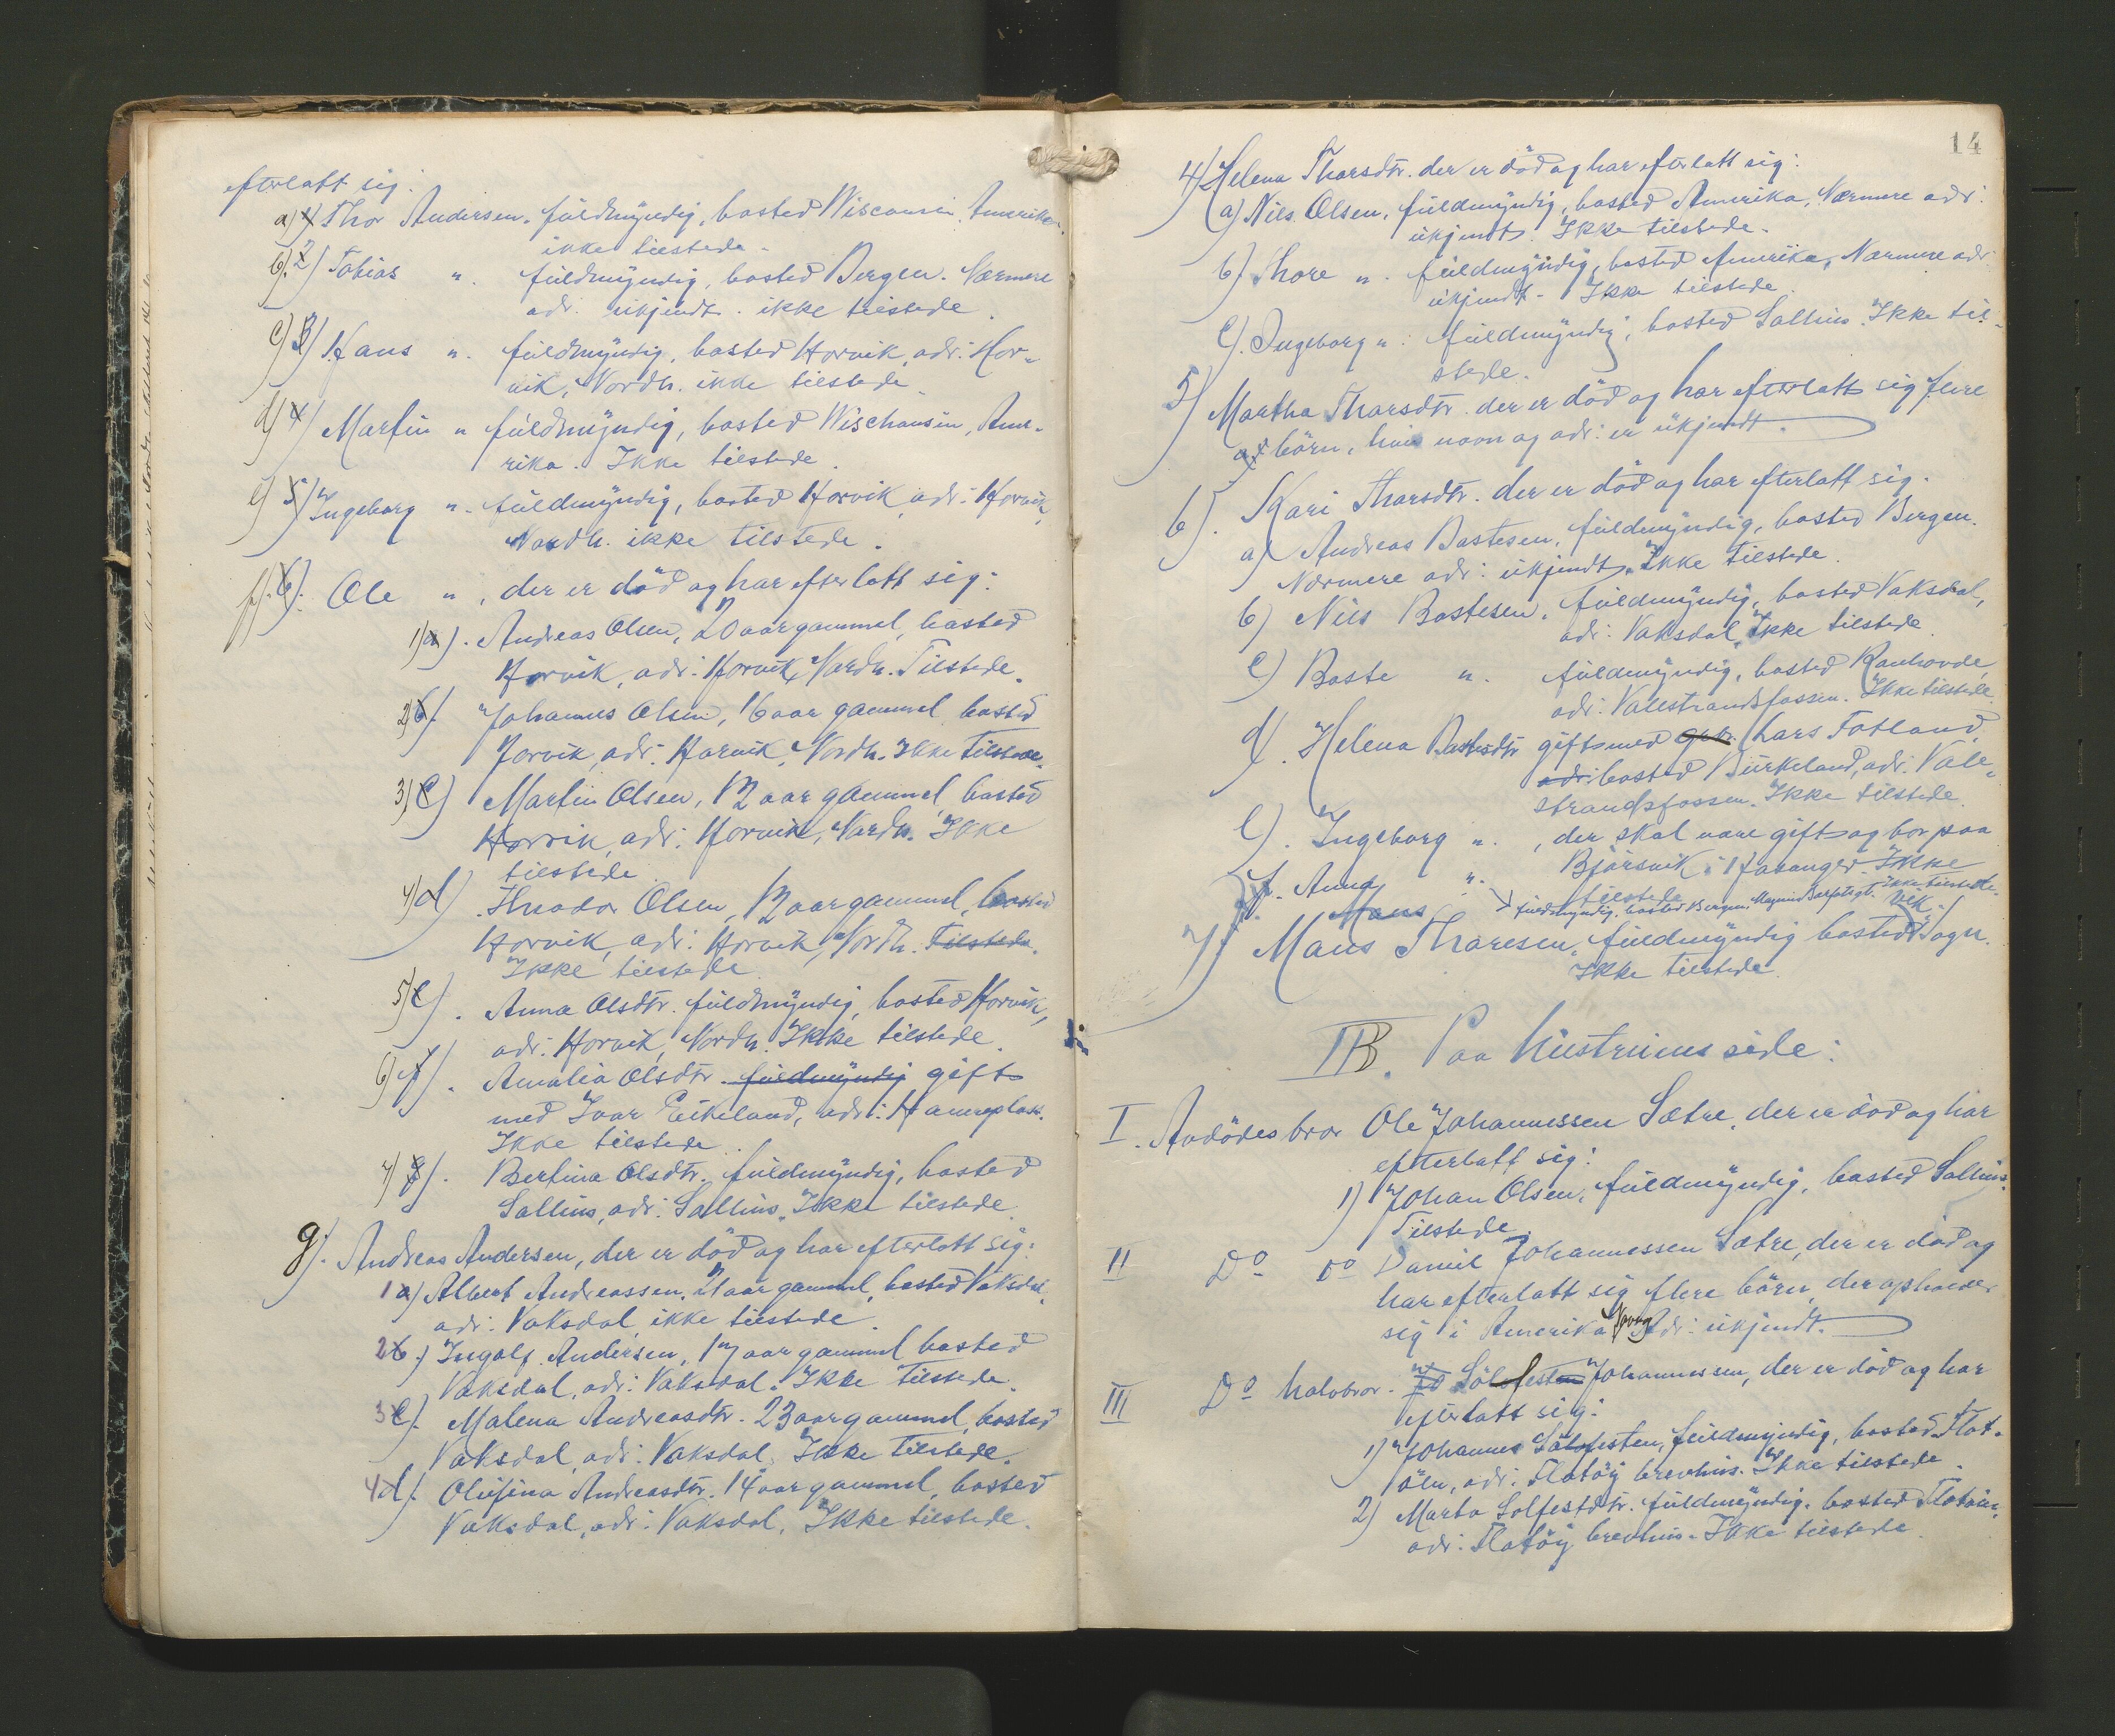 efterlatt sig:
a) 1) Thor Andersen. fuldmyndig, bosted Wisconsin, Amerika.
ikke tilstede.
b). 2) Tobias " fuldmyndig, bosted Bergen. Nærmere
adr. ukjendt. ikke tilstede.
c) 3) Hans " fuldmyndig, bosted Horvik, adr: Hor-
vik, Nordh. ikke tilstede
d) 4) Martin " fuldmyndig, bosted Wischonsin, Ame-
rika. Ikke tilstede
e) 5) Ingeborg " fuldmyndig, bosted Horvik, adr: Horvik,
Nordh. ikke tilstede.
f). 6). Ole " , der er död og har efterlatt sig:
1) a). Andreas Olsen, 20 aar gammel, bosted
Horvik, adr: Horvik, Nordh. Tilstede.
2) b). Johannes Olsen, 16 aar gammel, bosted
Horvik, adr: Horvik, Nordh. Ikke tilstede.
3) c) Martin Olsen, 12 aar gammel, bosted
Horvik, adr: Horvik, Nordh. Ikke
tilstede
4) d) Theodor Olsen, 12 aar gammel, bosted
Horvik, adr: Horvik, Nordh. Tilstede.
Ikke tilstede
5) e). Anna Olsdtr. fuldmyndig, bosted Horvik,
adr: Horvik, Nordh. Ikke tilstede.
6) f). Amalia Olsdtr. fuldmyndig gift
med Ivar Eikeland, adr: Hanneplass.
Ikke tilstede.
7) g). Bertina Olsdtr. fuldmyndig, bosted
Salhus, adr: Salhus. Ikke tilstede.
g). Andreas Andersen, der er död og har efterlatt sig:
1 a) Albert Andreassen, aar gammel, bosted Vaksdal,
adr: Vaksdal, ikke tilstede.
2 b.) Ingolf Andersen, 17 aar gammel bosted
Vaksdal, adr: Vaksdal. Ikke tilstede.
3 c). Malena Andreasdtr. 23 aar gammel, bosted
Vaksdal, adr: Vaksdal. Ikke tilstede.
4 d). Olufina Andreasdtr. 14 aar gammel, bosted
Vaksdal, adr: Vaksdal, Ikke tilstede.
14
4) Helena Tharsdtr. der er död og har efterlatt sig:
a) Nils Olsen, fuldmyndig, bosted Amerika, Nærmere adr:
ukjendt. Ikke tilstede.
b). Thore " fuldmyndig, bosted Amerika, Nærmere adr
ukjendt. Ikke tilstede.
c). Ingeborg " fuldmyndig, bosted Salhus. Ikke til-
stede.
5) Martha Tharsdtr. der er död og har efterlatt sig flere
börn, hvis navn og adr: er ukjendt.
6). Kari Tharsdtr. der er död og har efterlatt sig.
a) Andreas Bastesen, fuldmyndig, bosted Bergen.
Nærmere adr: ukjendt. Ikke tilstede.
b) Nils Bastesen. fuldmyndig, bosted Vaksdal,
adr: Vaksdal, Ikke tilstede.
c) Baste " fuldmyndig, bosted Rauhovde,
adr: Valestrandsfossen. Ikke tilstede.
d). Helena Bastesdtr gift med Lars Fotland,
adr: bosted Birkeland, adr: Vale-
strandsfossen. Ikke tilstede.
e). Ingeborg " , der skal være gift og bor paa
Björsvik i Hosanger. Ikke
tilstede
f. Anna " fuldmyndig, bosted Bergen, Magnus Barfotsgt. Ikke tilstede.
Mons
7) Mons Tharesen, fuldmyndig bosted Vik Sogn.
Ikke tilstede.
B. Paa hustruens side:
I. Avdödes bror Ole Johannessen Sætre, der er död og har
efterlatt sig:
1) Johan Olsen, fuldmyndig, bosted Salhus.
Tilstede.
II Do Do Daniel Johannessen Sætre, der er död og
har efterlatt sig flere börn, der opholder
sig i Amerika Navn og Adr: ukjendt.
III Do halvbror. Sölfest Johannessen, der er död og har
efterlatt sig:
1) Johannes Sölfesten, fuldmyndig, bosted Flat-
öen, adr: Flatöy brevhus. Ikke tilstede.
2) Marta Solfestdtr. fuldmyndig. bosted Flatöen,
adr: Flatöy brevhus. Ikke tilstede.